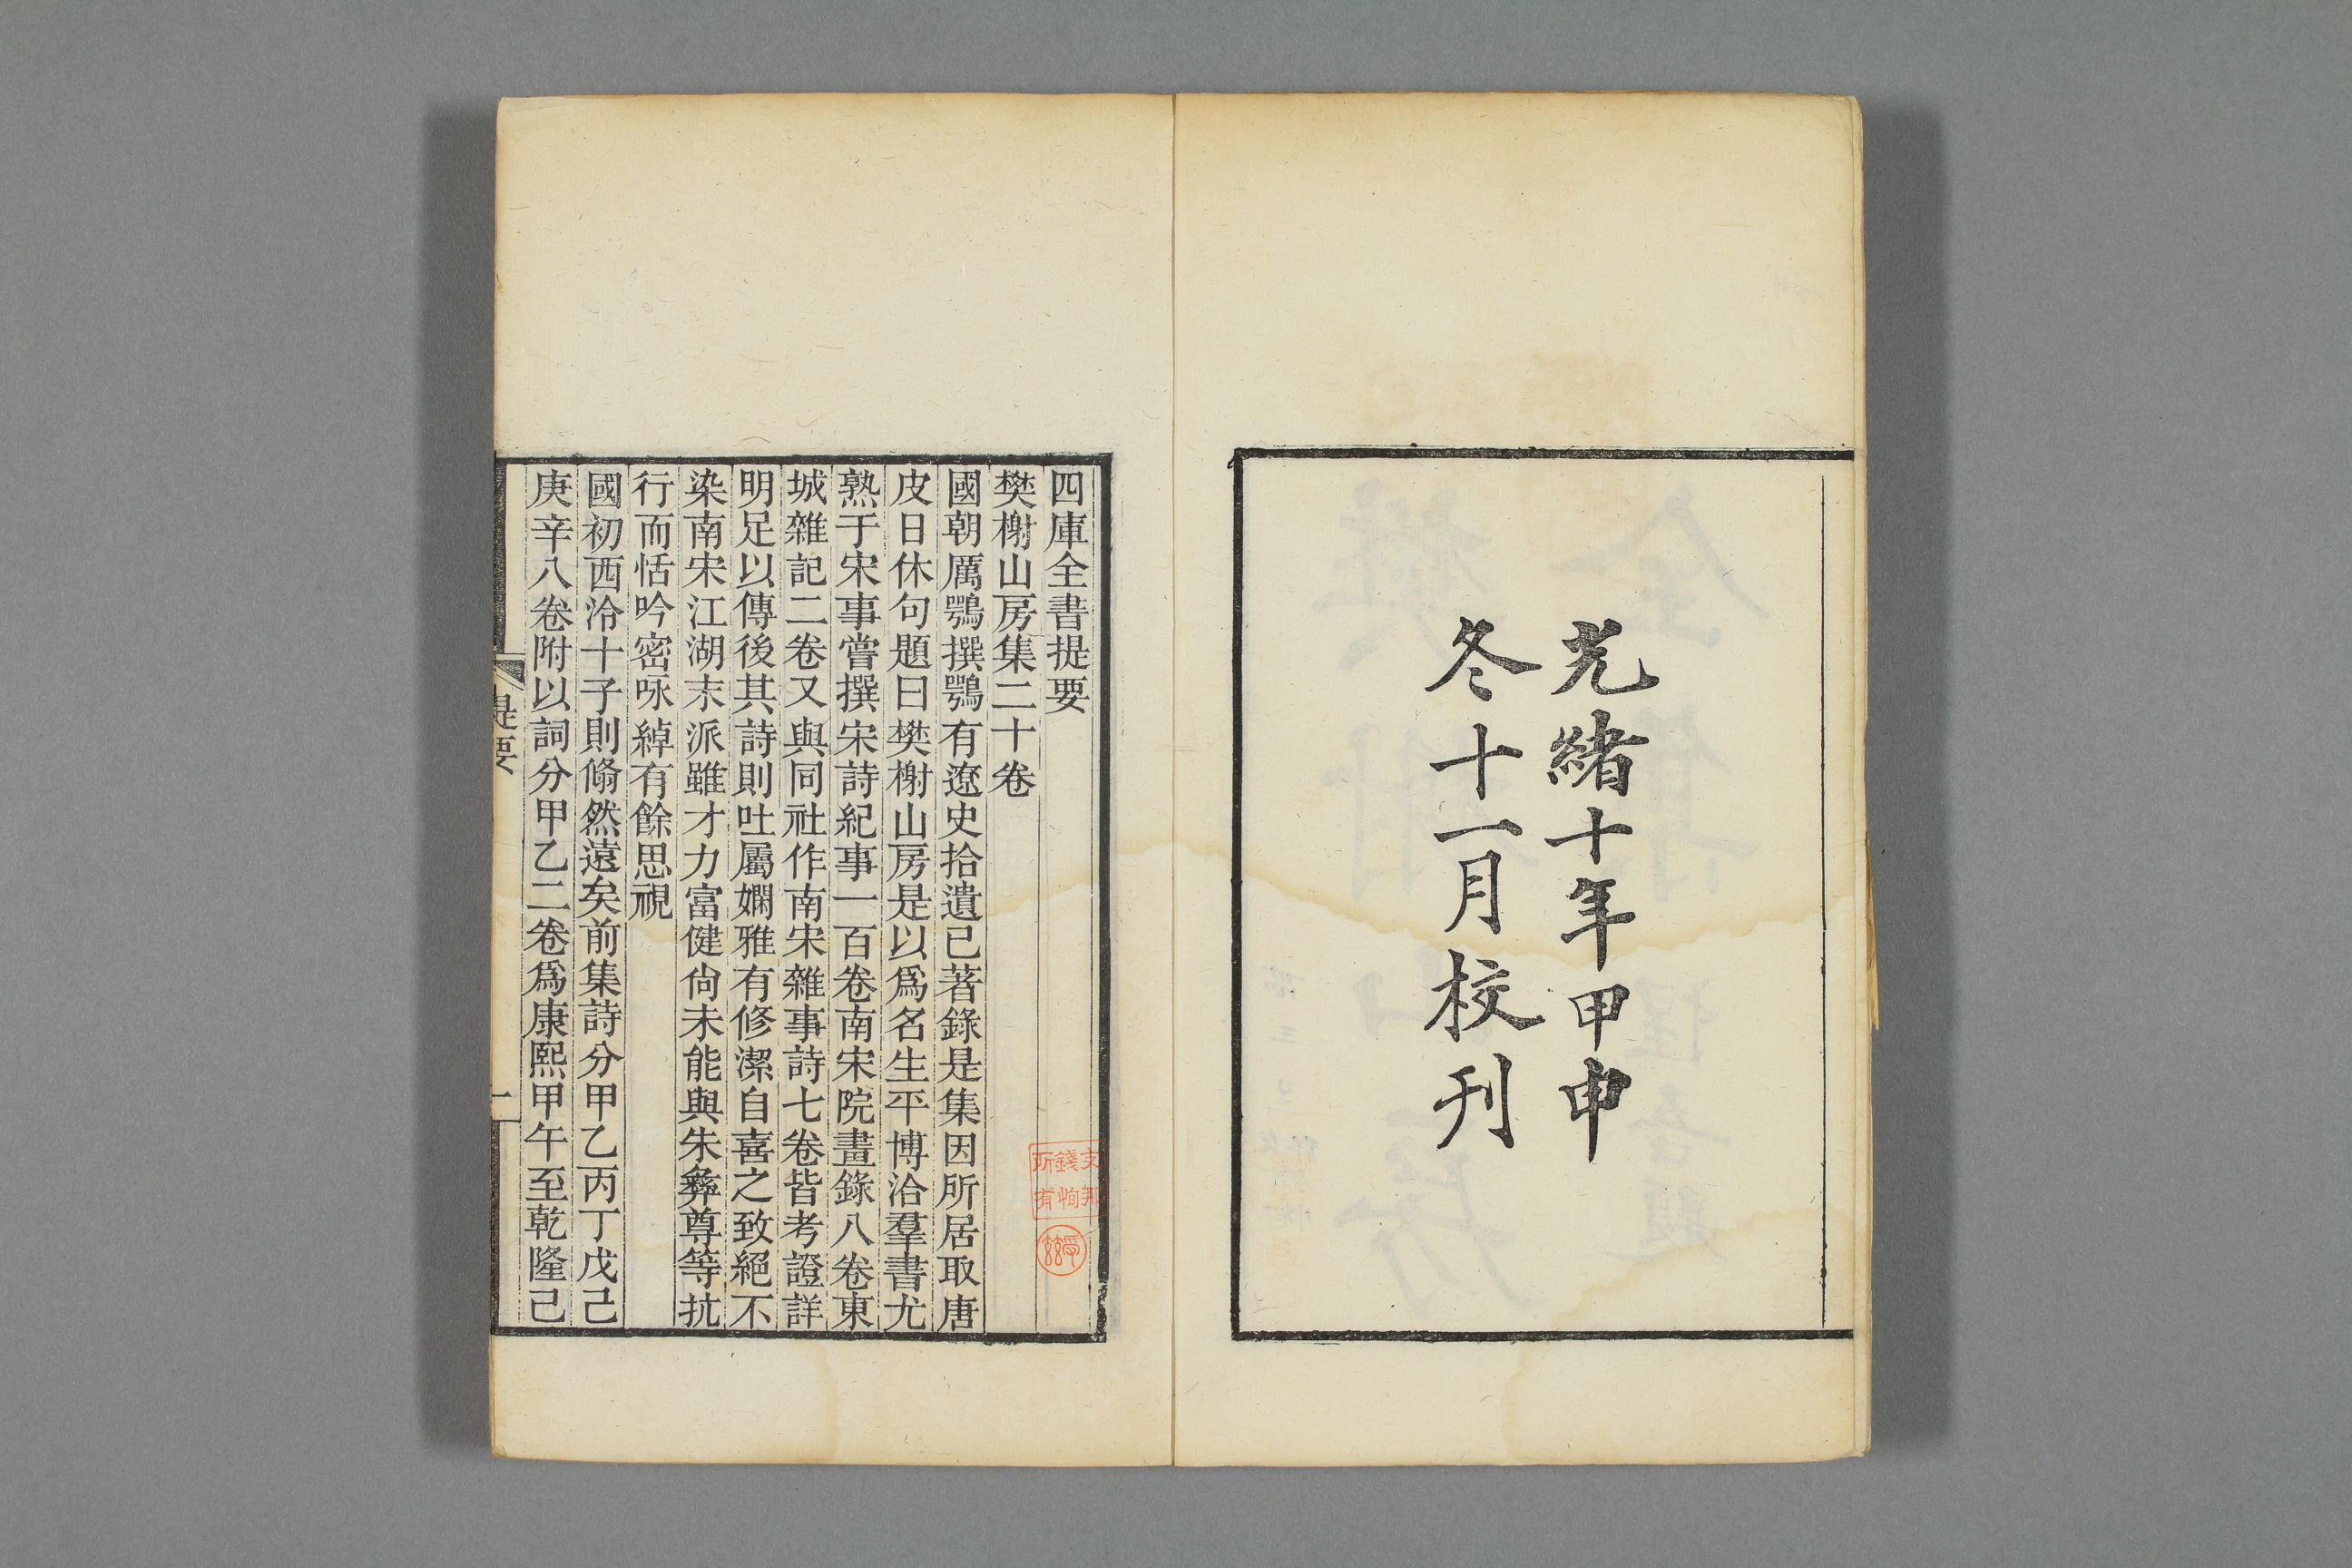 光緒十年甲申
冬十一月校刊
四庫全書提要
樊榭山房集二十卷
國朝厲鶚撰鶚有遼史拾遺已著錄是集因所居取唐
皮日休句題曰樊榭山房是以爲名生平博洽羣書尤
熟于宋事嘗撰宋詩紀事一百卷南宋院畫錄八卷東
城雜記二卷又與同社作南宋雜事詩七卷皆考證詳
明足以傳後其詩則吐屬嫻雅有修潔自喜之致絕不
染南宋江湖末派雖才力富健尙未能與朱彝尊等抗
行而恬吟密咏綽有餘思視
國初西泠十子則翛然遠矣前集詩分甲乙丙丁戊己
庚辛八卷附以詞分甲乙二卷爲康熙甲午至乾隆己
提要
一
支那
錢恂
所有